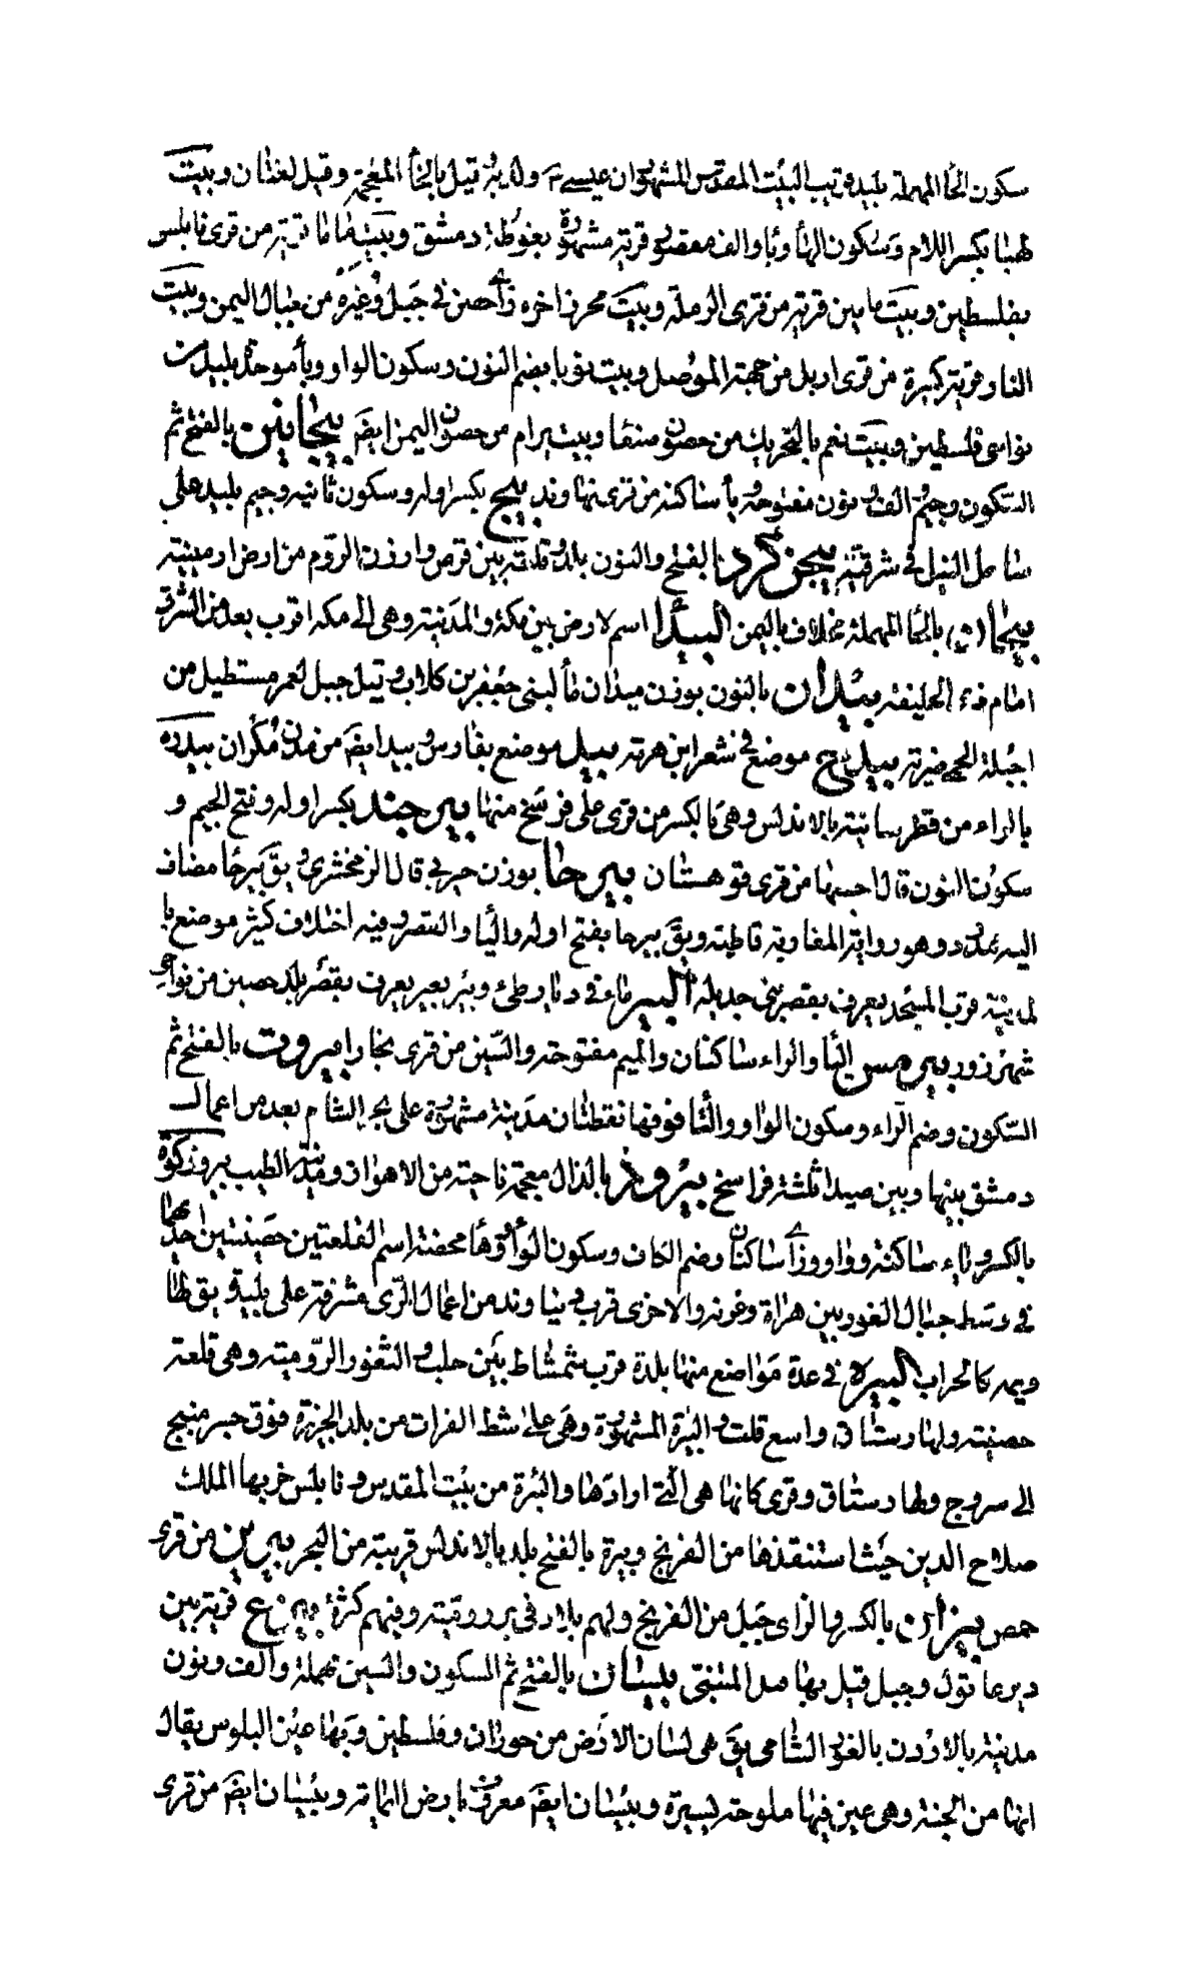 سكون الحا المهملة بليد قريب البيت المقدس المشهور ان عيسى ع ولد به قيل بالخا المعجمة وقيل لغتان وبيت
لهيا بكسر اللام وسكون الها ويا والف مقصورة قرية مشهورة بغوطة دمشق وبيت ماما قرية من قرى نابلس
بفلسطين وبيت مابين قرية من قرى الرملة وبيت محرز اخره زاى حصن فى جبل وغيره من جبال اليمن وبيت
النار قرية كبيرة من قرى اربل من جهة الموصل وبيت نوبا بضم النون وسكون الواو وبا موحدة بليد من
نواحى فلسطين وبيت نعم بالتحريك من حصون صنعا وبيت يرام من حصون اليمن ايضا بيجانين بالفتح ثم
السكون وجيم الف و نون مفتوحة يا ساكنه من قرى نهاوند بيج بكسر اوله وسكون ثانيه وجيم بليد على
ساحل النيل فى شرقيه بيجن كرد بالفتح والنون بلد قلعة بين قرص وارزن الروم من ارض ارمينية
بيحان بالحا المهملة مخلاف باليمن البيدا اسم لارض بين مكة والمدنية وهى الى مكه اقرب بعد من الشرق
امام ذى الحليفه بيدان بالنون بوزن ميدان ما لبنى جعفر بن كلاب وقيل جبل احمر مستطيل من
اجبلة الحمى ضرية بيدح موضع فى شعر ابن هرمة بيد موضع بفارس وبيد ايضا من مدن مكران بيدره
بالراء من قطر بالاندلس وهى بالكسر من قرى على فرسخ منها بير جند بكسر اوله وفتح الجيم و
سكون النون قال احسبها من قرى قوهستان بير حا بوزن حربى قال الزمخشرى و يق بيرحا مضاف
اليه ممدود وهو رواية المغاربة قاطبة ويق بيرحا بفتح اوله واليا والقصر و فيه اختلاف كثير موضع با
لمدينة قرب المسجد يعرف بقصر بنى جديلة البير ماء فى ديار طئ وبير بعير يعرف بقصر بلد حصين من نواحى
شهرزور بيرمس اليا والراء ساكنان والميم مفتوحة والسين من قرى بخارا بيروت بالفتح ثم
السكون وضم الراء وسكون الواو والتا فوقها نقطتان مدينة مشهورة على بحر الشام يعد من اعمال
دمشق بينها وبين صيدا ثلثة فراسخ بيروذ بالذال معجمة ناحية من الاهواز ومدينة الطيب بيروزكوه
بالكسر وياء ساكنة و راء و واو وزاى ساكنان وضم الكاف وسكون الواو وها محضة اسم القلعتين حصينتين احدهما
فى وسط جبال الغور بين هراة وغزنه والاخرى قرب دنباوند من اعمال الرى مشرفة على بليدة يق لها
ويمه كالخراب البيرة فى عدة مواضع منها بلدة قرب سميساط بين حلب و الثغور الروميه وهى قلعة
حصينة ولها رستاق واسع قلت و البيرة المشهورة وهى على شط الفرات من بلد الجزيرة فوق جسر منبج
الى سروج ولها رستاق وقرى كانها هى التى ارادها والبيرة من بيت المقدس و نابلس خربها الملك
صلاح الدين حيث استنقذها من الفرنج وبيرة بالفتح بلد بالاندلس قريبة من البحر بيرين من قرى
حمص بيزان بالكسر والزاى جبل من الفرنج ولهم بلاد فى بر رومية وفيهم كثرة بيزع قرية بين
ديرعاقول وجبل قيل بها قتل المتنبى بيسان بالفتح ثم السكون والسين مهملة والف ونون
مدنية بالاردن بالغور الشامى يق هى لسان الارض من حوران وفلسطين وبها عين الفلوس يقال
انها من الجنة وهى عين فيها ملوحة يسيرة وبيسان ايضا معروف بارض اليمامة وبيسان ايضا من قرى